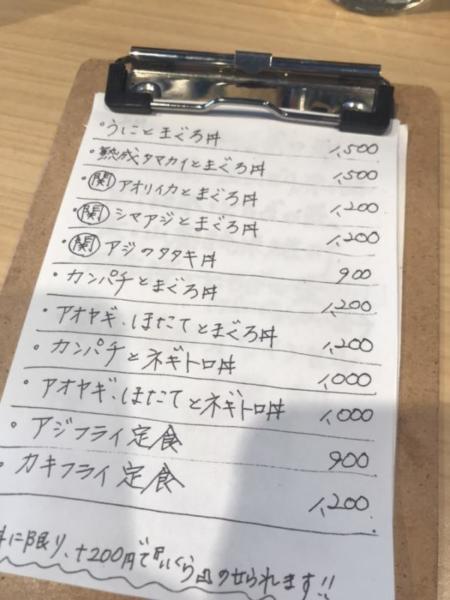 ・うにとまぐろ丼 1,500
・熟成タマカイとまぐろ丼 1,500
・㊙関 アオリイカとまぐろ丼 1,200
・関 シマアジとまぐろ丼 1,200
・関 アジのタタキ丼 900
・カンパチとまぐろ丼 1,200
・アオヤギ、ほたてとまぐろ丼 1,200
・カンパチとネギトロ丼 1,000
・アオヤギ、ほたてとネギトロ丼 1,000
・アジフライ定食 900
・カキフライ定食 1,200
丼に限り、+200円で『いくら』のせられます!!